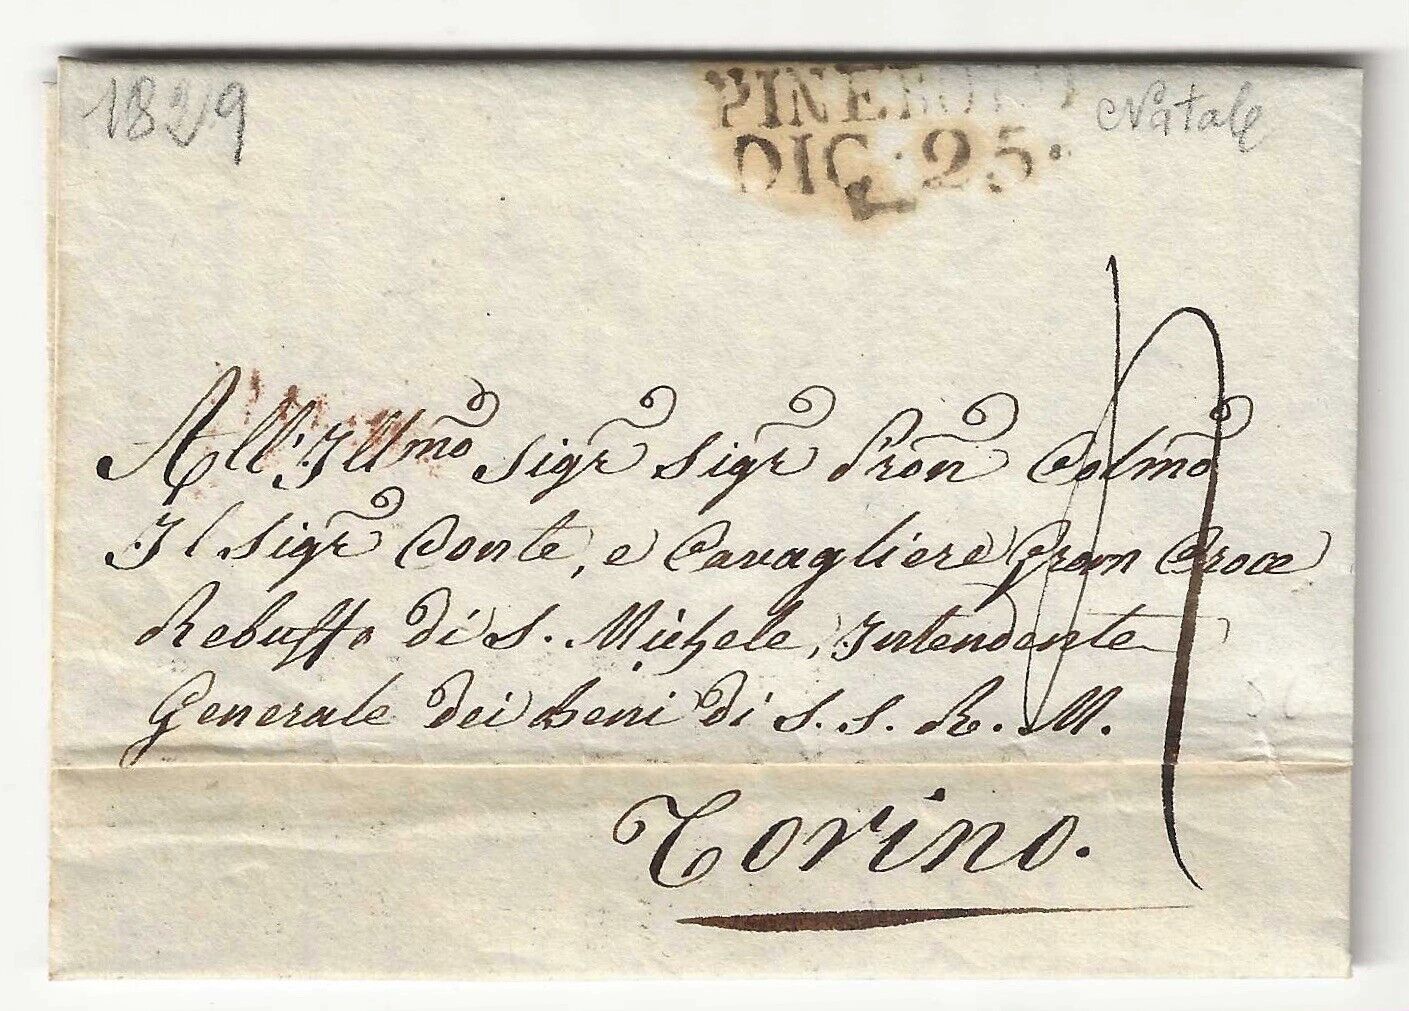 1829
PINEROLO
DIC. 25.
Natale
All'Illmo Sigr Sigr Pron Colmo
Il Sigr Conte, e Cavagliere Gran Croce
Rebuffo di S. Michele, Intendente
Generale dei beni di S. S. R. M.
Torino.